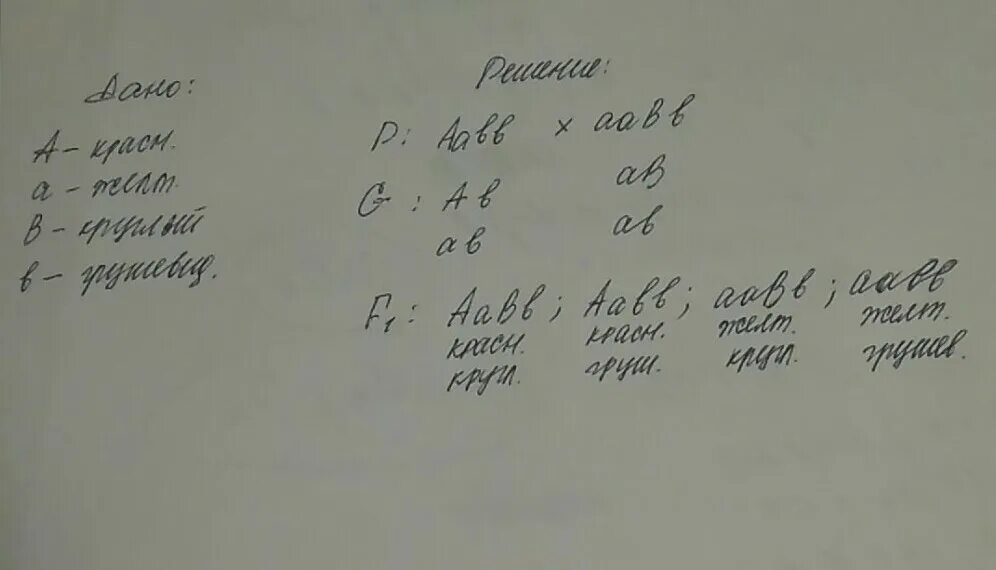 Дано:
А - красн.
а - желт.
В - круглый
в - грушевид.
Решение:
Р: Аавв х ааВв
G: Ав аВ
ав ав
F₁: АаВв; Аавв; ааВв; аавв
красн. красн. желт. желт.
кругл. груш. кругл. грушев.